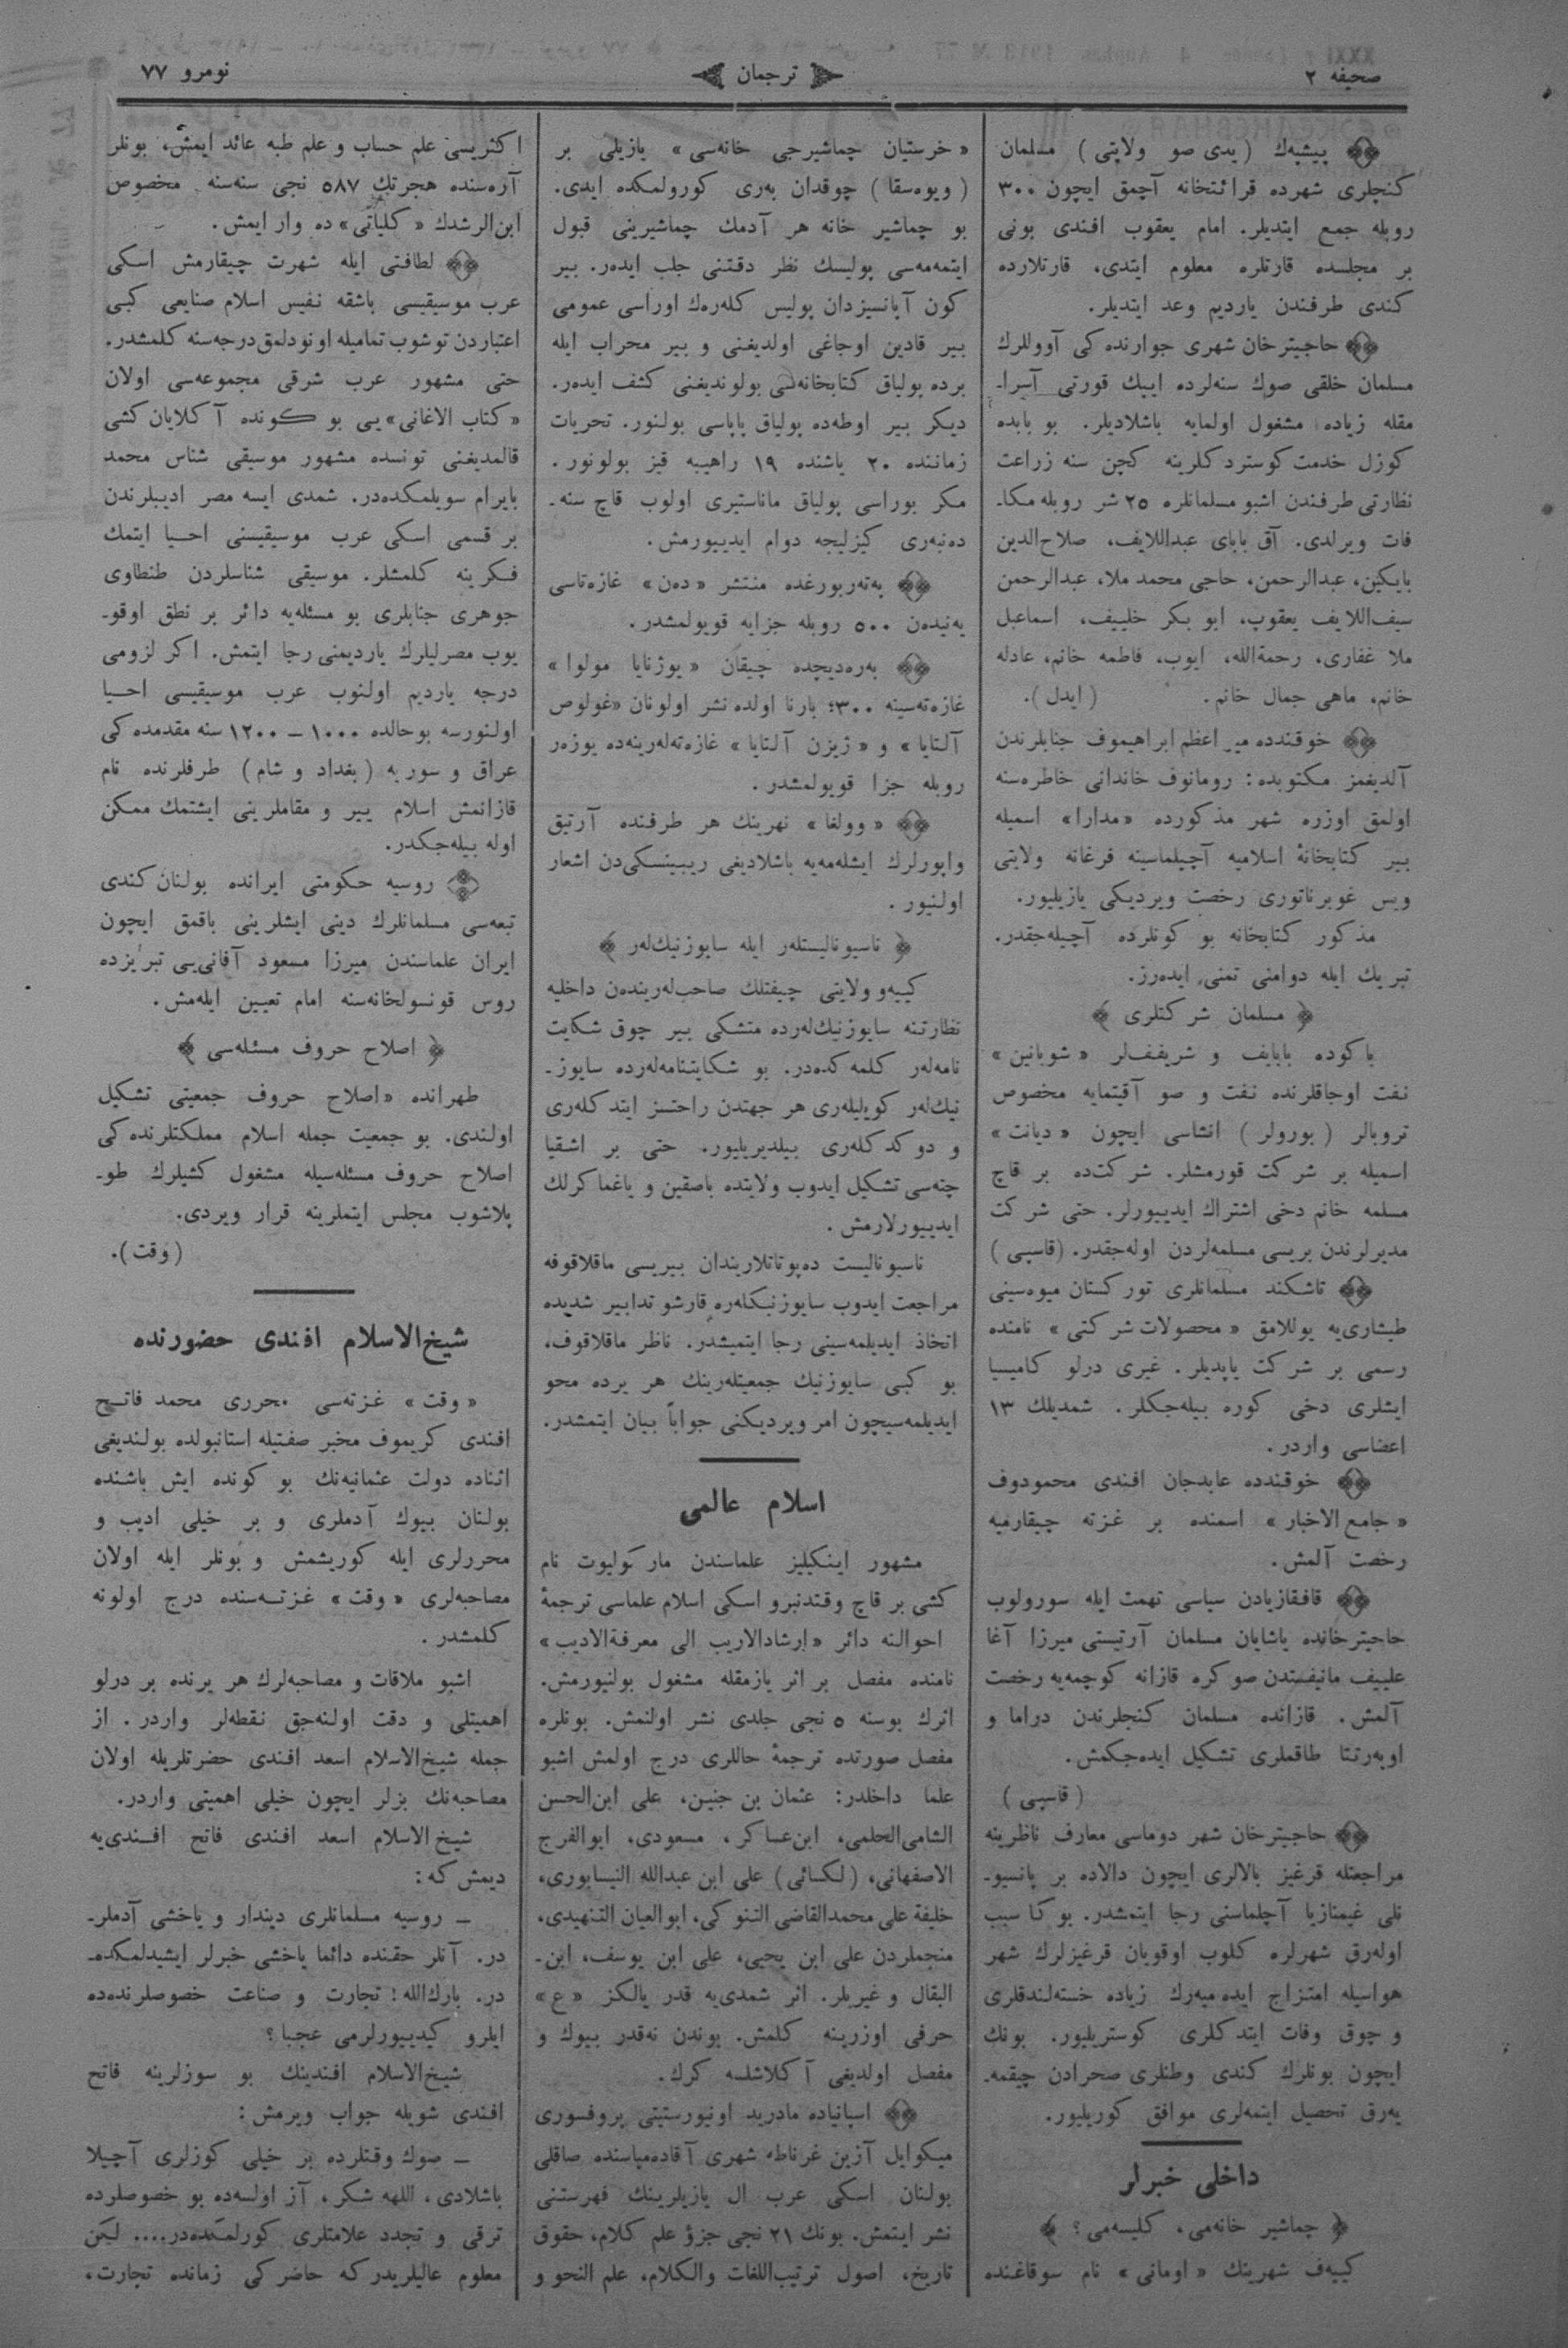 صحیفه ٢
ترجمان
نومرو ٧٧
پیشپەك (یدی صو ولایتی) مسلمان
كنجلری شهرده قرائتخانه آچمق ایچون ٣٠٠
روبله جمع ایتدیلر. امام یعقوب افندی بونی
بر مجلسده قارتلره معلوم ایتدی، قارتلارده
كندی طرفندن یاردیم وعد ایتدیلر.
حاجیترخان شهری جوارنده كی آووللرك
مسلمان خلقی صوك سنه‌لرده ایپك قورتی آسرا-
مقله زیاده مشغول اولمایه باشلادیلر. بو بابده
كوزل خدمت كوستردكلرینه كچن سنه زراعت
نظارتی طرفندن اشبو مسلمانلره ٢٥ شر روبله مكا-
فات ویرلدی. آق بابای عبداللایف، صلاح‌الدین
بایكین، عبدالرحمن، حاجی محمد ملا، عبدالرحمن
سیف‌اللایف یعقوب، ابو بكر خلییف، اسماعیل
ملا غفاری، رحمةالله، ایوب، فاطمه خانم، عادله
خانم، ماهی جمال خانم. (ایدل).
خوقندده میر اعظم ابراهیموف جنابلرندن
آلدیغمز مكتوبده: رومانوف خاندانی خاطره‌سنه
اولمق اوزره شهر مذكورده «مدارا» اسمیله
بیر كتابخانۀ اسلامیه آچیلماسینه فرغانه ولایتی
ویس غوبرناتوری رخصت ویردیكی یازیلیور.
مذكور كتابخانه بو كونلرده آچیله‌جقدر.
تبریك ایله دوامنی تمنی ایده‌رز.
﴿ مسلمان شركتلری ﴾
باكوده بابایف و شریفف‌لر «شوبانین»
نفت اوجاقلرنده نفت و صو آقیتمایه مخصوص
تروبالر (بورولر) انشاسی ایچون «دیانت»
اسمیله بر شركت قورمشلر. شركت‌ده بر قاچ
مسلمه خانم دخی اشتراك ایدییورلر. حتی شركت
مدیرلرندن بریسی مسلمه‌لردن اوله‌جقدر. (قاسپی)
تاشكند مسلمانلری توركستان میوه‌سینی
طیشاری‌یه یوللامق «محصولات شركتی» نامنده
رسمی بر شركت یاپدیلر. غیری درلو كامیسیا
ایشلری دخی كوره بیله‌جكلر. شمدیلك ١٣
اعضاسی واردر.
خوقندده عابدجان افندی محمودوف
«جامع‌الاخبار» اسمنده بر غزته چیقارمیه
رخصت آلمش.
قافقازیادن سیاسی تهمت ایله سورولوب
حاجیترخانده یاشایان مسلمان آرتیستی میرزا آغا
علییف مانیفستدن صوكره قازانه كوچمه‌یه رخصت
آلمش. قازانده مسلمان كنجلرندن دراما و
اوپه‌رتتا طاقملری تشكیل ایده‌جكمش.
(قاسپی)
حاجیترخان شهر دوماسی معارف ناظرینه
مراجعتله قرغیز بالالری ایچون دالاده بر پانسیو-
نلی غیمنازیا آچلماسنی رجا ایتمشدر. بوكا سبب
اوله‌رق شهرلره كلوب اوقویان قرغیزلرك شهر
هواسیله امتزاج ایده‌میه‌رك زیاده خسته‌لندقلری
و چوق وفات ایتدكلری كوستریلیور. بونك
ایچون بونلرك كندی وطنلری صحرادن چیقمه-
یه‌رق تحصیل ایتمه‌لری موافق كوریلیور.
داخلی خبرلر
﴿ چماشیر خانه‌می، كلیسه‌می؟ ﴾
كییه‌ف شهرینك «اومانی» نام سوقاغنده
«خرستیان چماشیرجی خانه‌سی» یازیلی بر
(ویوه‌سقا) چوقدان به‌ری كورولمكده ایدی.
بو چماشیر خانه هر آدمك چماشیرینی قبول
ایتمه‌مه‌سی پولیسك نظر دقتنی جلب ایده‌ر. بیر
كون آپانسیزدان پولیس كله‌ره‌ك اوراسی عمومی
بیر قادین اوجاغی اولدیغنی و بیر محراب ایله
برده پولیاق كتابخانه‌سی بولوندیغنی كشف ایده‌ر.
دیكر بیر اوطه‌ده پولیاق پاپاسی بولنور. تحریات
زماننده ٢٠ یاشنده ١٩ راهیبه قیز بولونور.
مكر بوراسی پولیاق ماناستیری اولوب قاچ سنه-
ده‌نبه‌ری كیزلیجه دوام ایدییورمش.
په‌ته‌ربورغده منتشر «ده‌ن» غازه‌تاسی
یه‌نیده‌ن ٥٠٠ روبله جزایه قویولمشدر.
به‌ره‌دیچده چیقان «یوژنایا مولوا»
غازه‌ته‌سینه ٣٠٠؛ بارنا اولده نشر اولونان «غولوص
آلتایا» و «ژیزن آلتایا» غازه‌ته‌له‌رینه‌ده یوزه‌ر
روبله جزا قویولمشدر.
«وولغا» نهرینك هر طرفنده آرتیق
واپورلرك ایشله‌مه‌یه باشلادیغی ریبینسكی‌دن اشعار
اولنیور.
﴿ ناسیونالیستله‌ر ایله سایوزنیك‌له‌ر ﴾
كییه‌و ولایتی چیفتلك صاحب‌له‌رینده‌ن داخلیه
نظارتنه سایوزنیك‌له‌رده متشكی بیر چوق شكایت
نامه‌له‌ر كلمه‌كده‌در. بو شكایتنامه‌له‌رده سایوز-
نیك‌له‌ر كویلیله‌ری هر جهتدن راحتسز ایتدكله‌ری
و دوكدكله‌ری بیلدیریلیور. حتی بر اشقیا
چته‌سی تشكیل ایدوب ولایتده باصقین و یاغماكرلك
ایدییورلارمش.
ناسیونالیست ده‌پوتاتلاریندان بیریسی ماقلاقوفه
مراجعت ایدوب سایوزنیكله‌ره قارشو تدابیر شدیده
اتخاذ ایدیلمه‌سینی رجا ایتمیشدر. ناظر ماقلاقوف،
بو كبی سایوزنیك جمعیتله‌رینك هر یرده محو
ایدیلمه‌سیچون امر ویردیكنی جواباً بیان ایتمشدر.
اسلام عالمی
مشهور اینكیلیز علماسندن ماركولیوت نام
كشی بر قاچ وقتدنبرو اسكی اسلام علماسی ترجمۀ
احوالنه دائر «ارشادالاریب الی معرفةالادیب»
نامنده مفصل بر اثر یازمقله مشغول بولنیورمش.
اثرك بوسنه ٥ نجی جلدی نشر اولنمش. بونلره
مفصل صورتده ترجمۀ حاللری درج اولمش اشبو
علما داخلدر: عثمان بن جنین، علی ابن‌الحسن
الشامی‌الحلمی، ابن‌عساكر، مسعودی، ابوالفرج
الاصفهانی، (لكسائی) علی ابن عبدالله النیسابوری،
خلیفة علی محمدالقاضی التنوكی، ابوالعیان التنهیدی،
منجملردن علی ابن یحیی، علی ابن یوسف، ابن-
البقال و غیریلر. اثر شمدی‌یه قدر یالكز «ع»
حرفی اوزرینه كلمش. بوندن نه‌قدر بیوك و
مفصل اولدیغی آكلاشلسه كرك.
اسپانیاده مادرید اونیورستیتی پروفسوری
میكوایل آزین غرناطه شهری آقاده‌میاسنده صاقلی
بولنان اسكی عرب ال یازیلرینك فهرستنی
نشر ایتمش. بونك ٢١ نجی جزؤ علم كلام، حقوق
تاریخ، اصول ترتیب‌اللغات والكلام، علم النحو و
اكثریسی علم حساب و علم طبه عائد ایمش، بونلر
آره‌سنده هجرتك ٥٨٧ نجی سنه‌سنه مخصوص
ابن‌الرشدك «كلیاتی» ده وار ایمش.
لطافتی ایله شهرت چیقارمش اسكی
عرب موسیقیسی باشقه نفیس اسلام صنایعی كبی
اعتباردن توشوب تمامیله اونودلمق درجه‌سنه كلمشدر.
حتی مشهور عرب شرقی مجموعه‌سی اولان
«كتاب الاغانی»یی بو كونده آكلایان كشی
قالمدیغنی تونسده مشهور موسیقی شناس محمد
بایرام سویلمكده‌در. شمدی ایسه مصر ادیبلرندن
بر قسمی اسكی عرب موسیقیسنی احیا ایتمك
فكرینه كلمشلر. موسیقی شناسلردن طنطاوی
جوهری جنابلری بو مسئله‌یه دائر بر نطق اوقو-
یوب مصرلیلرك یاردیمنی رجا ایتمش. اكر لزومی
درجه یاردیم اولنوب عرب موسیقیسی احیا
اولنورسه بوحالده ١٠٠٠ – ١٢٠٠ سنه مقدمده كی
عراق و سوریه (بغداد و شام) طرفلرنده نام
قازانمش اسلام ییر و مقاملرینی ایشتمك ممكن
اوله بیله‌جكدر.
روسیه حكومتی ایرانده بولنان كندی
تبعه‌سی مسلمانلرك دینی ایشلرینی باقمق ایچون
ایران علماسندن میرزا مسعود آقانی‌یی تبریزده
روس قونسولخانه‌سنه امام تعیین ایله‌مش.
﴿ اصلاح حروف مسئله‌سی ﴾
طهرانده «اصلاح حروف جمعیتی تشكیل
اولندی. بو جمعیت جمله اسلام مملكتلرنده‌كی
اصلاح حروف مسئله‌سیله مشغول كشیلرك طو-
پلاشوب مجلس ایتملرینه قرار ویردی.
(وقت).
شیخ‌الاسلام افندی حضورنده
«وقت» غزته‌سی محرری محمد فاتح
افندی كریموف مخبر صفتیله استانبولده بولندیغی
اثناده دولت عثمانیه‌نك بو كونده ایش باشنده
بولنان بیوك آدملری و بر خیلی ادیب و
محررلری ایله كوریشمش و بونلر ایله اولان
مصاحبه‌لری «وقت» غزته‌سنده درج اولونه
كلمشدر.
اشبو ملاقات و مصاحبه‌لرك هر یرنده بر درلو
اهمیتلی و دقت اولنه‌جق نقطه‌لر واردر. از
جمله شیخ‌الاسلام اسعد افندی حضرتلریله اولان
مصاحبه‌نك بزلر ایچون خیلی اهمیتی واردر.
شیخ‌الاسلام اسعد افندی فاتح افندی‌یه
دیمش كه:
– روسیه مسلمانلری دیندار و یاخشی آدملر-
در. آنلر حقنده دائما یاخشی خبرلر ایشیدلمكده-
در. بارك‌الله! تجارت و صناعت خصوصلرنده‌ده
ایلرو كیدییورلرمی عجبا؟
شیخ‌الاسلام افندینك بو سوزلرینه فاتح
افندی شویله جواب ویرمش:
– صوك وقتلرده بر خیلی كوزلری آچیلا
باشلادی، اللهه شكر، آز اولسه‌ده بو خصوصلرده
ترقی و تجدد علامتلری كورلمكده‌در.... لیكن
معلوم عالیلریدر كه حاضركی زمانده تجارت،